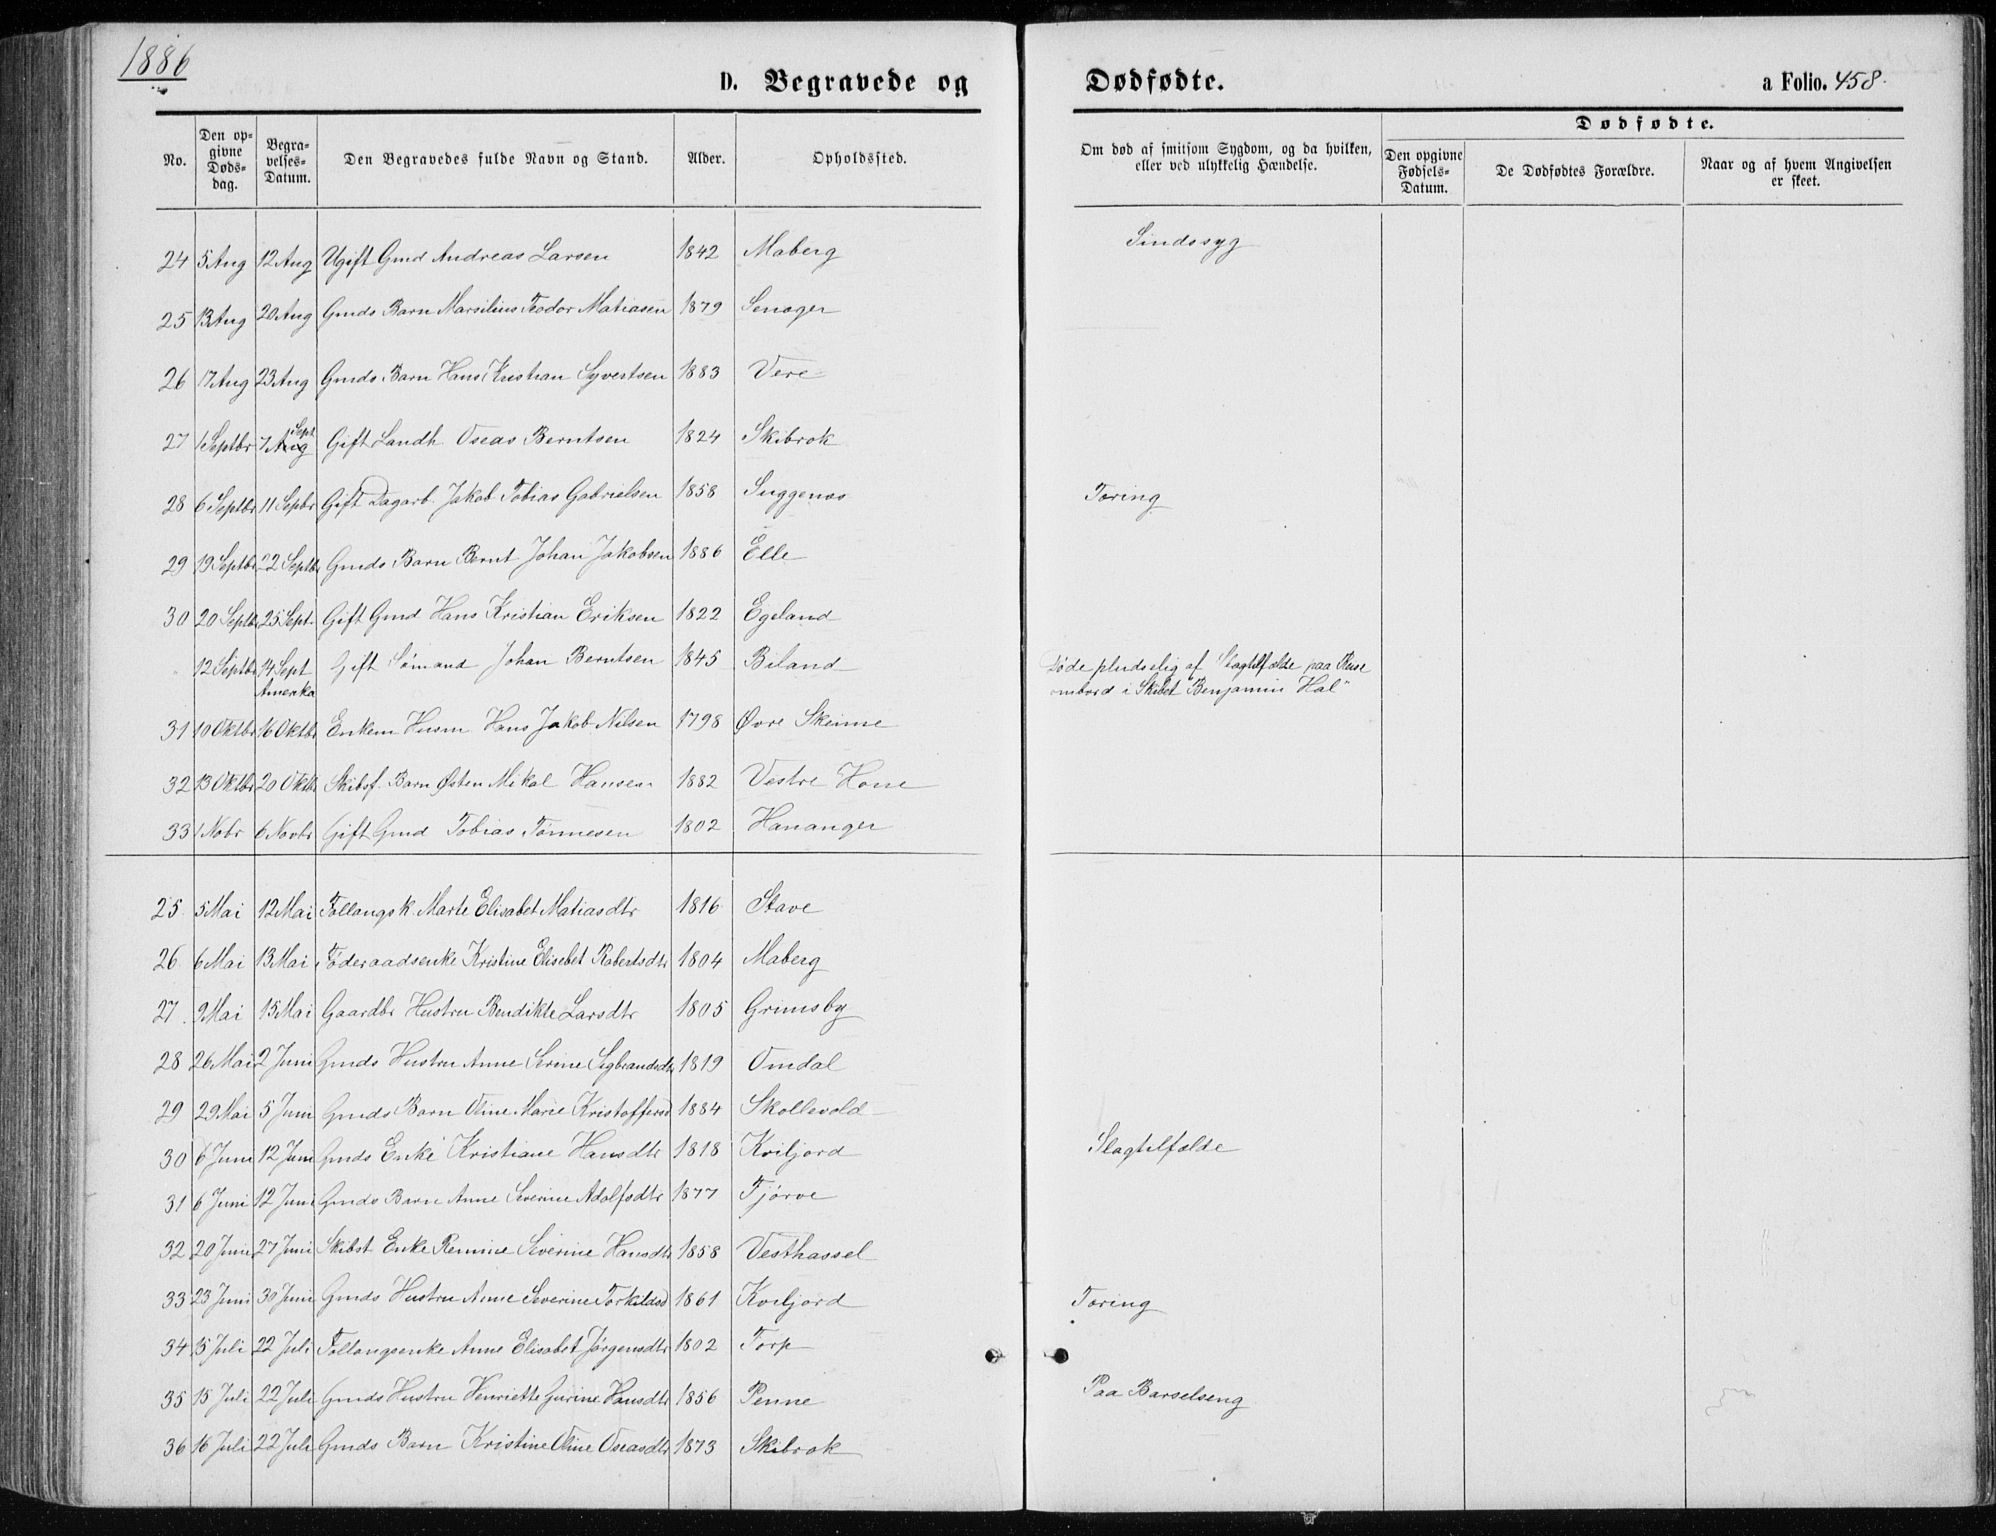 1886
D. Begravede og Dødfødte. a Folio. 458.
No. | Den opgivne Døds-dag. | Begravelses-Datum. | Den Begravedes fulde Navn og Stand. | Alder. | Opholdssted. | Om død af smitsom Sygdom, og da hvilken, eller ved ulykkelig Hændelse. | Dødfødte. | Den opgivne Fødsels-Datum. | De Dødfødtes Forældre. | Naar og af hvem Angivelsen er skeet.
24 5 Aug 12 Aug Ugift Gmd Andreas Larsen 1842 Maberg Sindssyg
25 13 Aug 20 Aug Gmds Barn Marsilius Teodor Matiasen 1879 Senager
26 17 Aug 23 Aug Gmds Barn Hans Kristian Syvertsen 1883 Vere
27 1 Septbr 7 Aug Sept Gift Landh Oseas Berntsen 1824 Skibrok
28 6 Septbr 11 Sepbr Gift Dagarb. Jakob Tobias Gabrielsen 1858 Snggenæs Tæring
29 19 Septbr 22 Septbr Gmds Barn Bernt Johan Jakobsen 1886 Elle
30 20 Septbr 25 Sept. Gift Gmd Hans Kristian Eriksen 1822 Egeland
12 Septbr 14 Sept Amerika Gift Sømand Johan Berntsen 1845 Biland Døde pludselig af Slagtilfælde paa Reise
ombord i Skibet "Benjamin Hal"
31 10 Oktbr 16 Oktbr Enkem Husm Hans Jakob Nilsen 1798 Øvre Skeime
32 13 Oktbr 20 Oktbr Skibsf. Barn Østen Mikal Hansen 1882 Vestre Hone
33 1 Nobr 6 Novbr Gift Gmd Tobias Tønnesen 1802 Hananger
25 5 Mai 12 Mai Follaugsk. Marte Elisabet Matiasdtr 1816 Stave
26 6 Mai 13 Mai Føderaadsenke Kristine Elisebet Robertsdtr 1804 Maberg
27. 9 Mai 15 Mai Gaardbr Hustru Bendikte Larsdtr 1805 Grimsby
28 26 Mai 2 Juni Gmds Hustru Anne Serine Sigbrandsdtr 1819 Omdal
29 29 Mai 5 Juni Gmds Barn Oline Marie Kristoffersd 1884 Skollevold
30 6 Juni 12 Juni Gmds Enke Kristiane Hansdtr 1818 Kviljord Slagtilfælde
31 6 Juni 12 Juni Gmds Barn Anne Severine Adolfsdtr 1877 Tjørve
32 20 Juni 27 Juni Skibst Enke Remine Severine Hansdtr 1858 Vesthassel
33 23 Juni 30 Juni Gmds Hustru Anne Severine Torkildsd 1861 Kviljord Tæring
34 15 Juli 22 Juli Follaugsenke Anne Elisabet Jørgensdtr 1802 Torp
35 15 Juli 22 Juli Gmds Hustru Henriette Gurine Hansdtr 1856 Penne Paa Barselseng
36 16 Juli 22 Juli Gmds Barn Kristine Oline Oseasdtr 1873 Skibrok